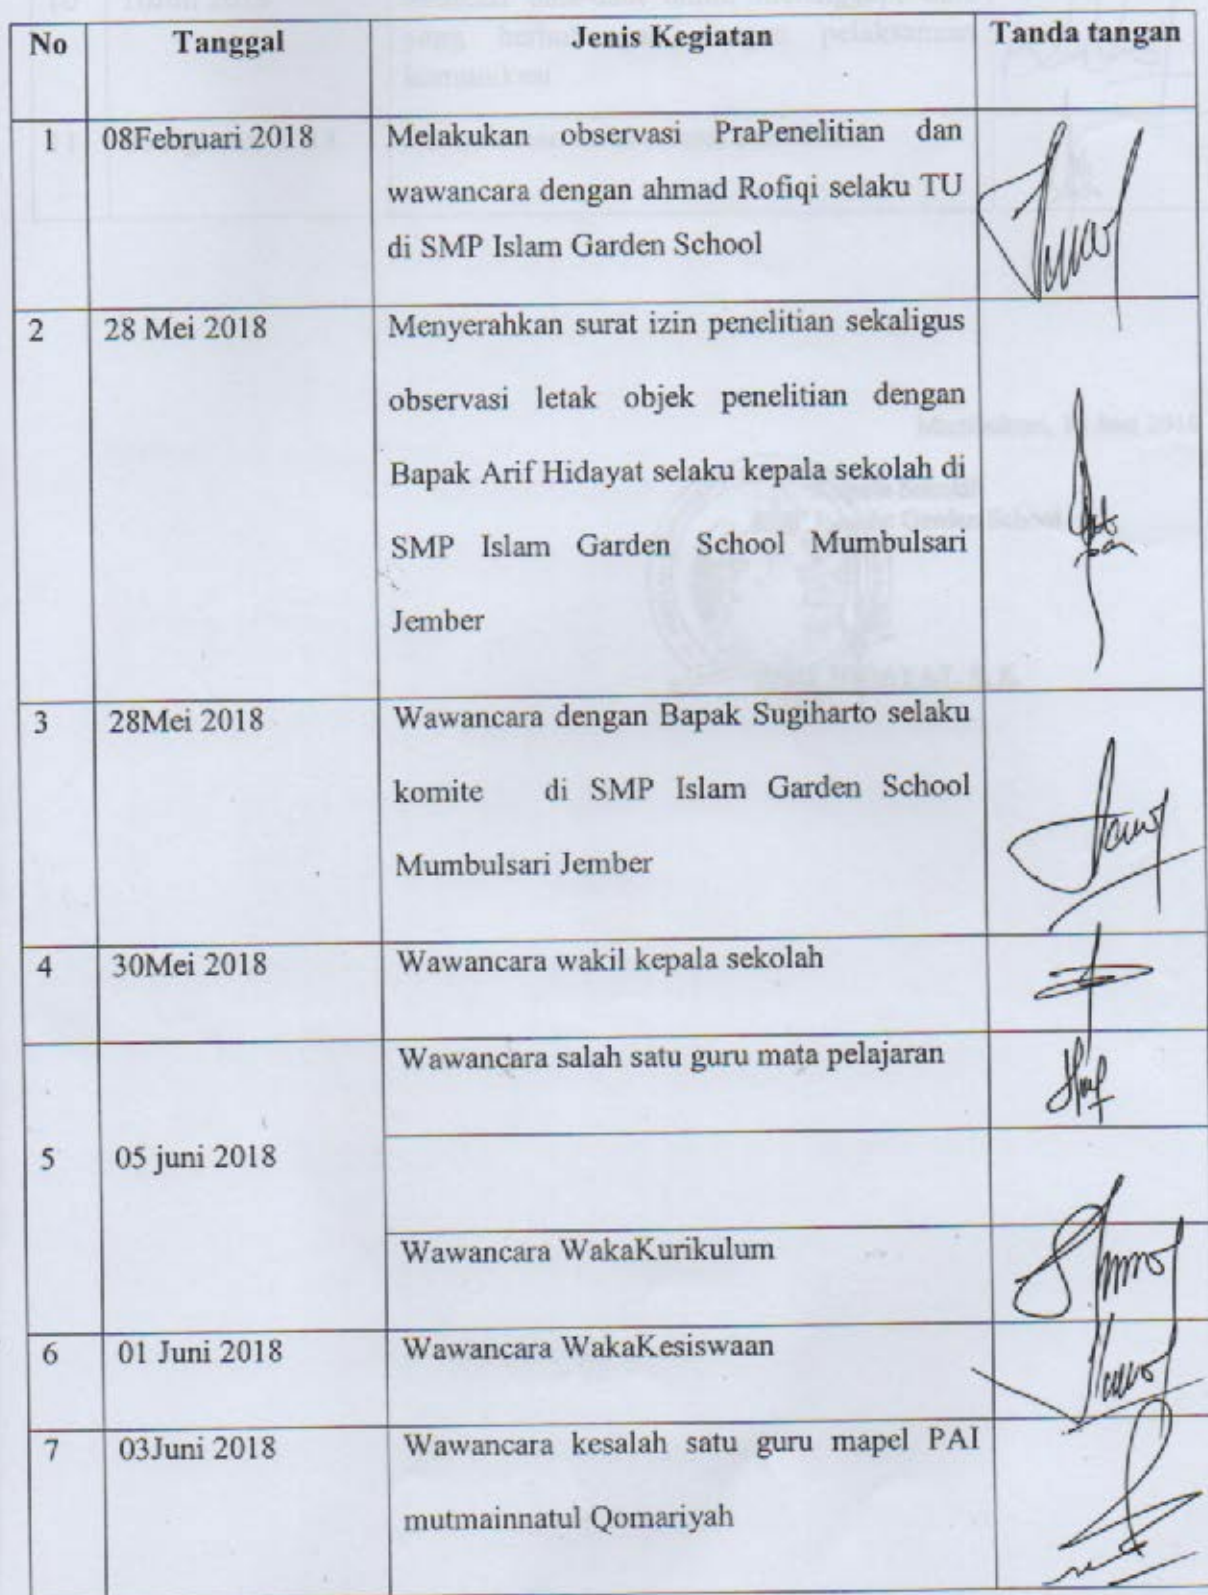 No Tanggal Jenis Kegiatan Tanda tangan
1 08Februari 2018 Melakukan observasi PraPenelitian dan
wawancara dengan ahmad Rofiqi selaku TU
di SMP Islam Garden School
2 28 Mei 2018 Menyerahkan surat izin penelitian sekaligus
observasi letak objek penelitian dengan
Bapak Arif Hidayat selaku kepala sekolah di
SMP Islam Garden School Mumbulsari
Jember
3 28Mei 2018 Wawancara dengan Bapak Sugiharto selaku
komite di SMP Islam Garden School
Mumbulsari Jember
4 30Mei 2018 Wawancara wakil kepala sekolah
Wawancara salah satu guru mata pelajaran
5 05 juni 2018
Wawancara WakaKurikulum
6 01 Juni 2018 Wawancara WakaKesiswaan
7 03Juni 2018 Wawancara kesalah satu guru mapel PAI
mutmainnatul Qomariyah